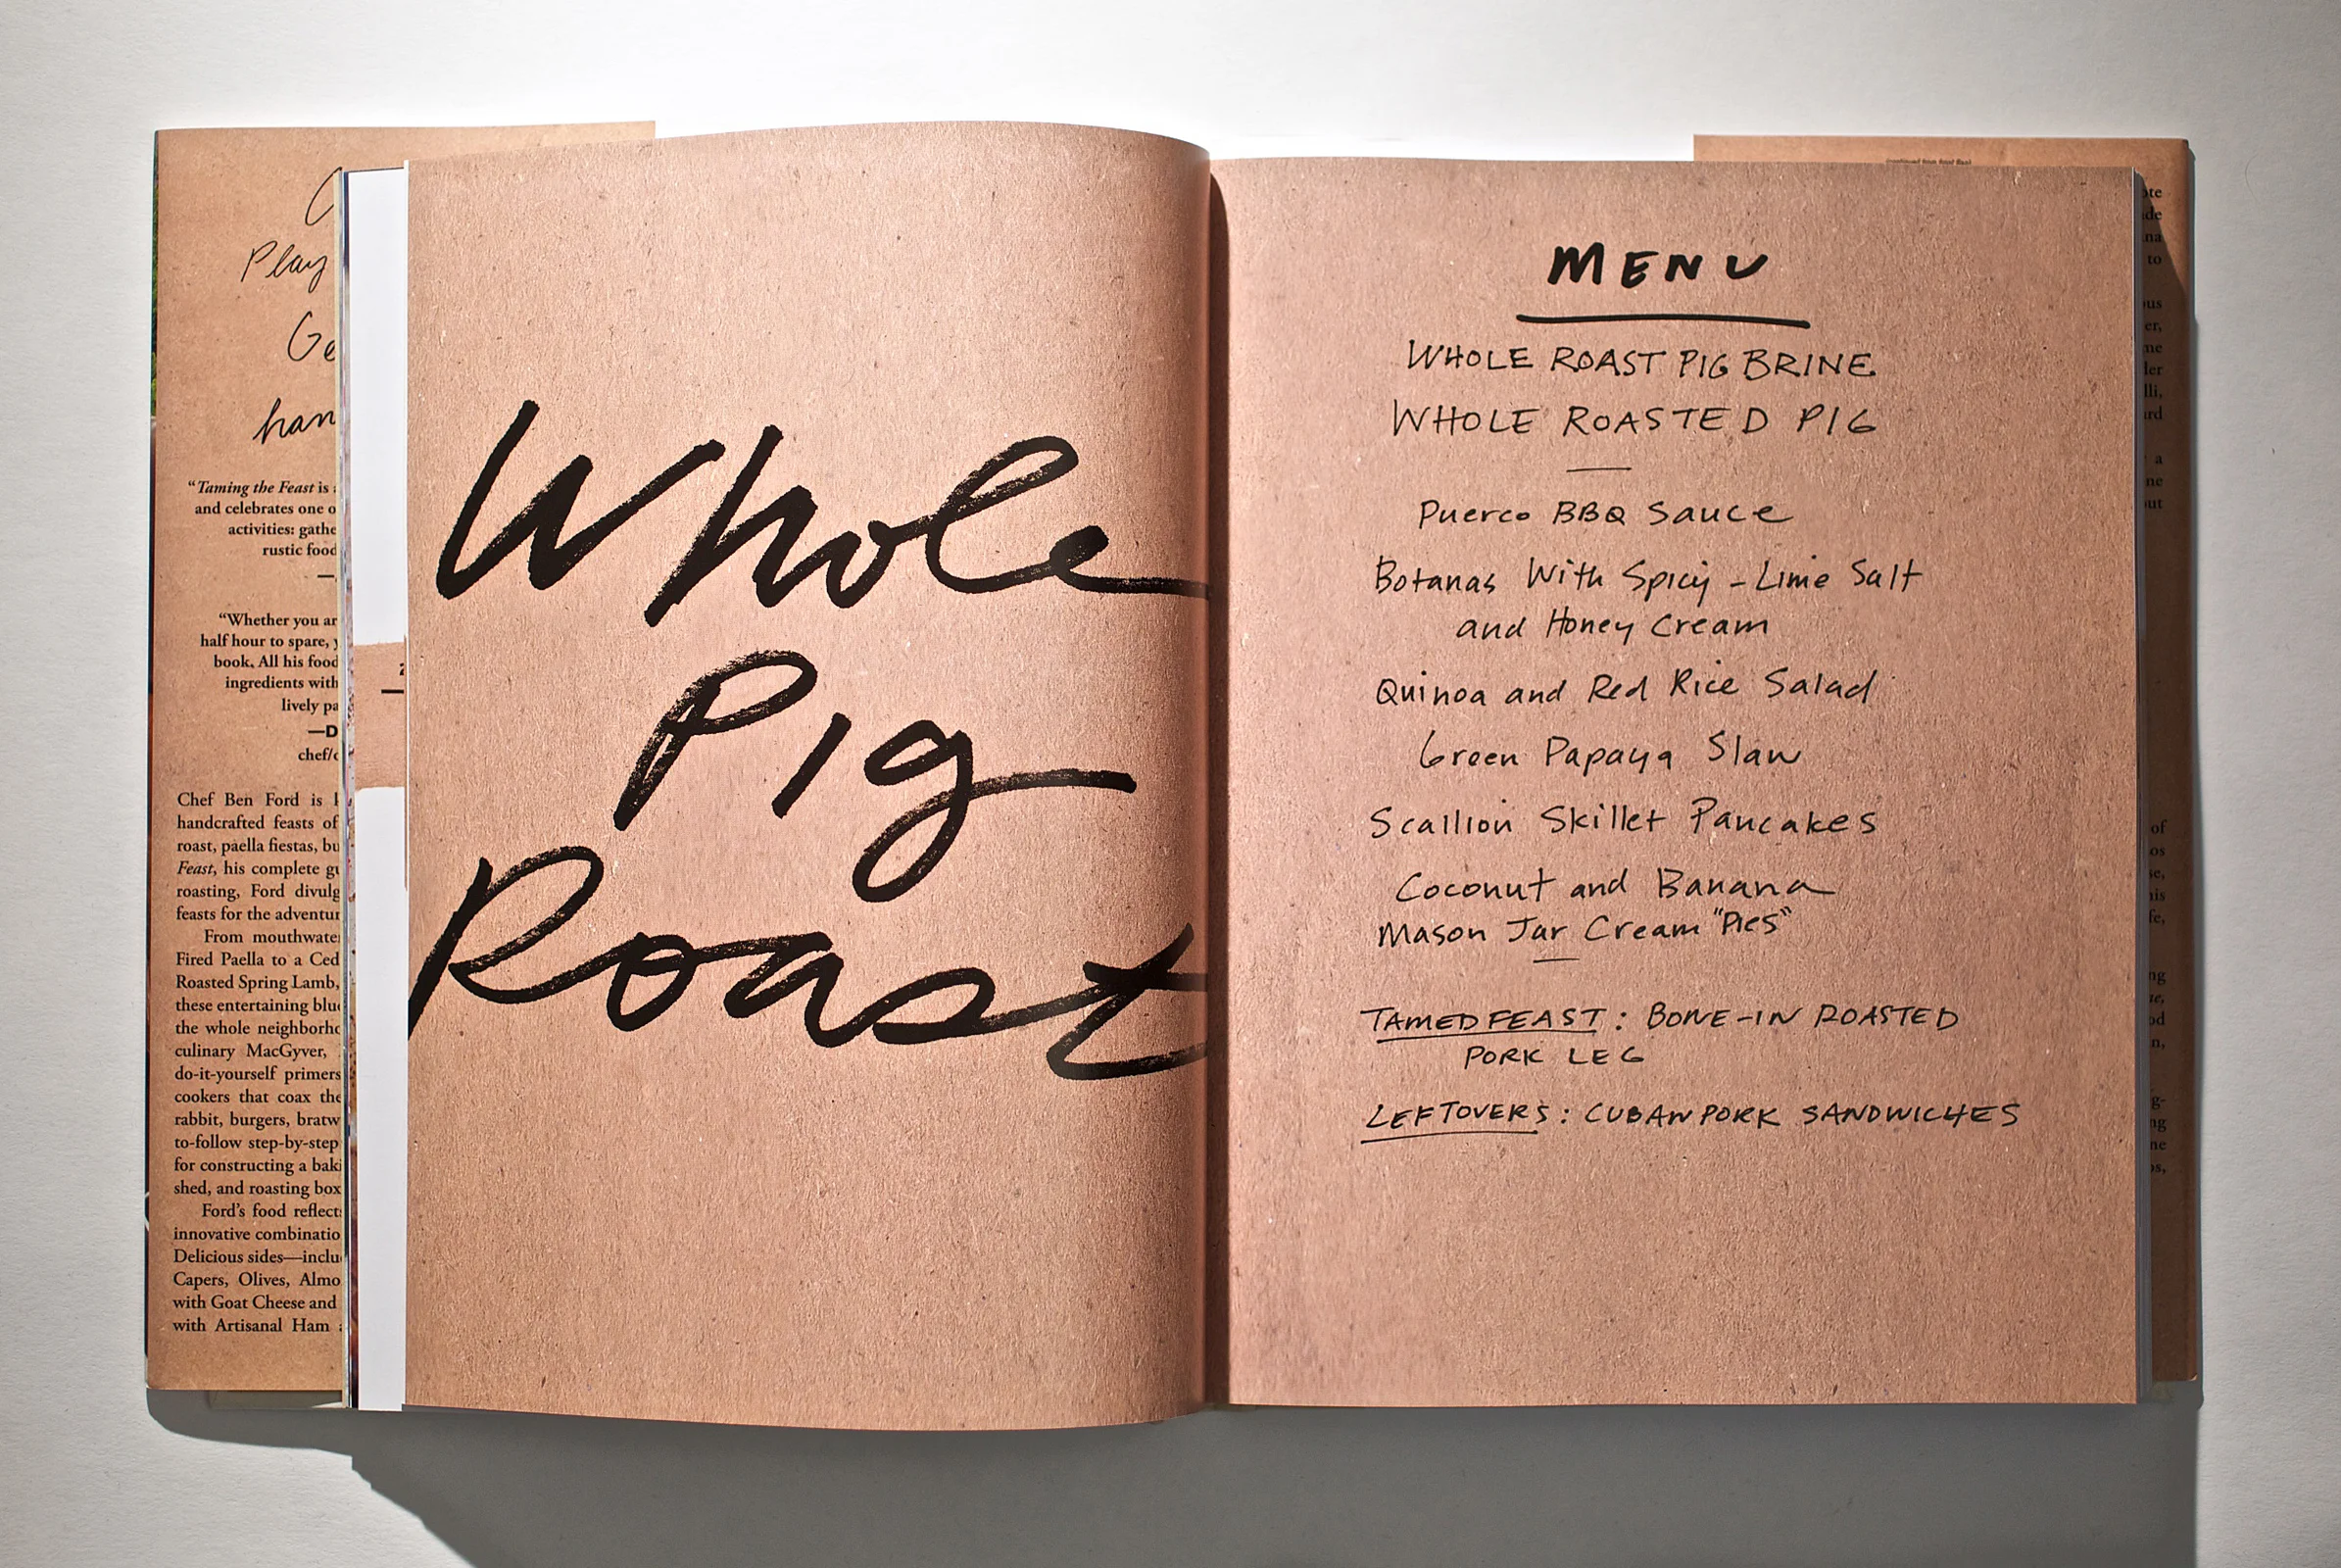 Play
"Taming the Feast is
and celebrates one o
activities: gathe
rustic food
"Whether you ar
half hour to spare, y
book. All his food
ingredients with
lively pa
—D
chef/c
Chef Ben Ford is
handcrafted feasts of
roast, paella fiestas, bu
Feast, his complete gu
roasting, Ford divulg
feasts for the adventur
From mouthwate
Fired Paella to a Ced
Roasted Spring Lamb,
these entertaining blu
the whole neighborho
culinary MacGyver,
do-it-yourself primers
cookers that coax the
rabbit, burgers, bratw
to-follow step-by-step
for constructing a baki
shed, and roasting box
Ford's food reflect
innovative combinatio
Delicious sides—inclu
Capers, Olives, Almo
with Goat Cheese and
with Artisanal Ham
Whole
Pig
Roast
MENU
WHOLE ROAST PIG BRINE
WHOLE ROASTED PIG
Puerco BBQ Sauce
Botanas With Spicy - Lime Salt
and Honey Cream
Quinoa and Red Rice Salad
Green Papaya Slaw
Scallion Skillet Pancakes
Coconut and Banana
Mason Jar Cream "Pies"
TAMED FEAST: BONE-IN ROASTED
PORK LEG
LEFTOVERS: CUBAN PORK SANDWICHES